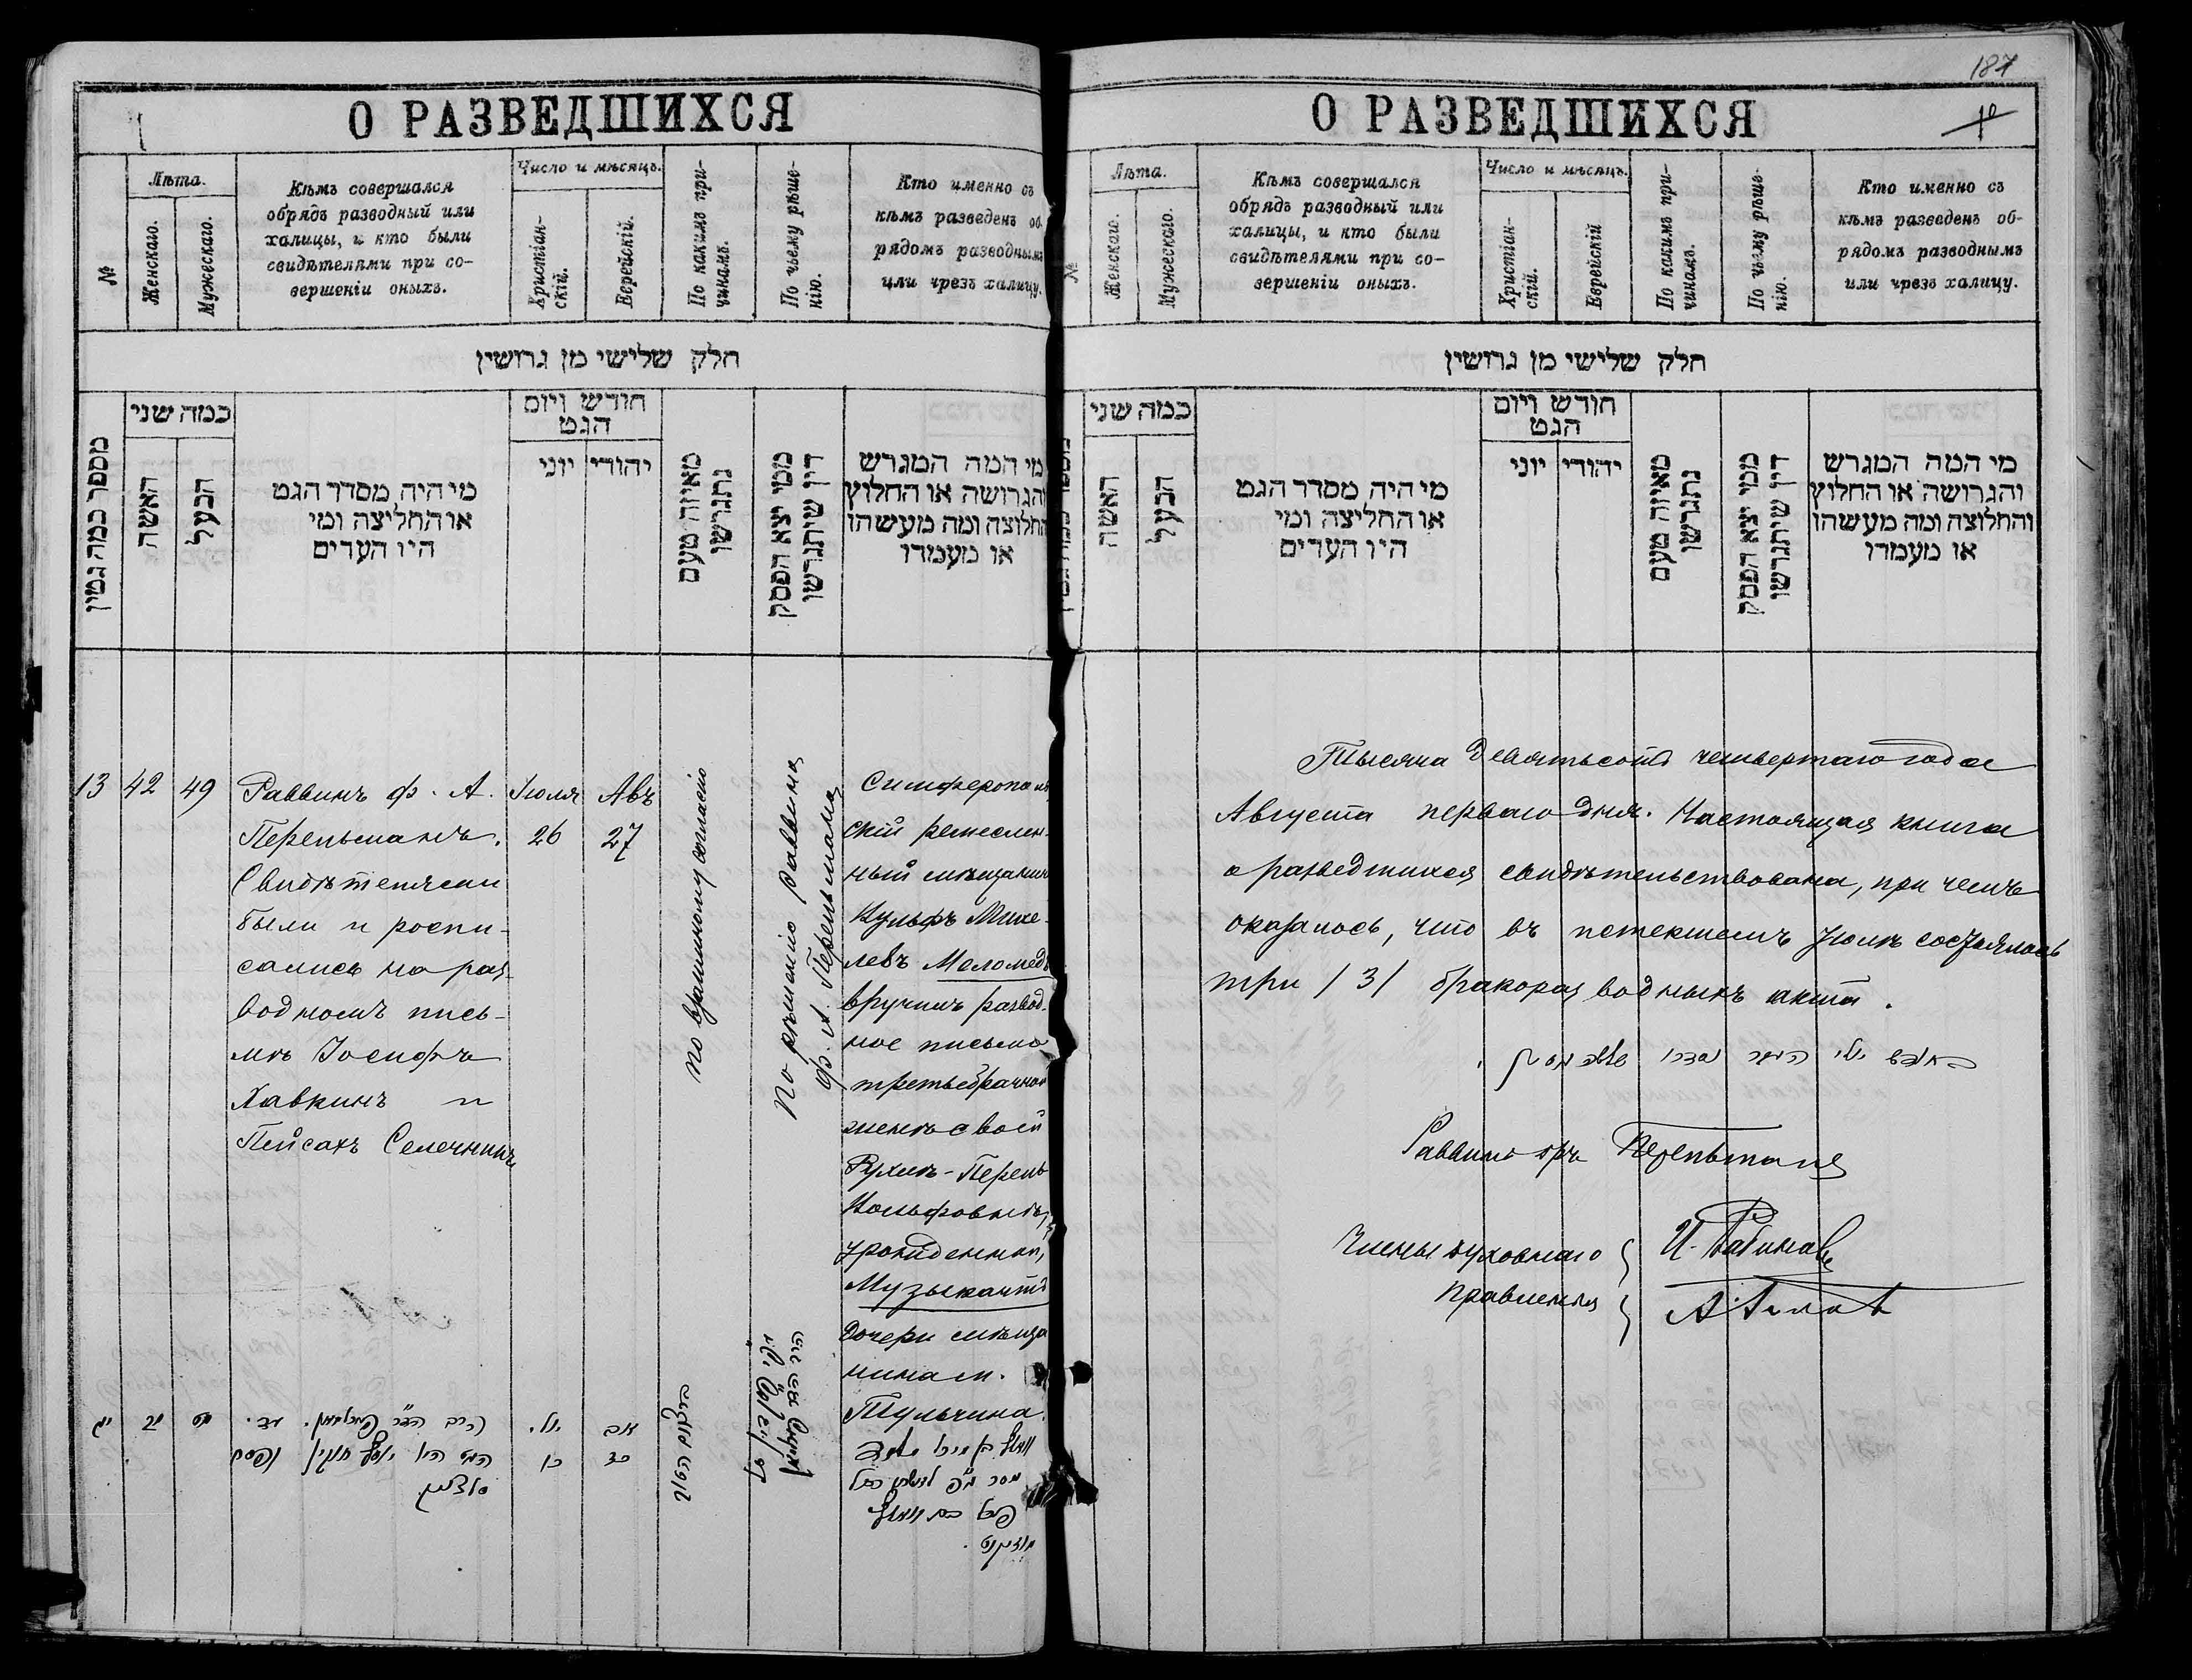 О РАЗВЕДШИХСЯ
№
Лѣта.
Женскаго.
Мужескаго.
Кѣмъ совершался
обрядъ разводный или
халицы, и кто были
свидѣтелями при со-
вершеніи оныхъ.
Число и мѣсяцъ.
Христіан-
скій.
Еврейскій.
По какимъ при-
чинамъ.
По чьему рѣше-
нію.
Кто именно съ
кѣмъ разведенъ об-
рядомъ разводнымъ
или чрезъ халицу.
חלק שלישי מן גרושין
מספר כמה גטין
כמה שני
האשה
הבעל
מי היה מסדר הגט
או החליצה ומי
היו העדים
חודש ויום
הגט
יוני
יהודי
מאיזה טעם
נתגרשו
ממי יצא הפסק
דין שיתגרשו
מי המה המגרש
והגרושה או החלוץ
והחלוצה ומה מעשהו
או מעמדו
13
42
49
Раввинъ ф. А.
Перельманъ.
Свидѣтелями
были и роспи-
сались на раз-
водномъ пись-
мѣ Іосифъ
Хавкинъ и
Пейсахъ Селечникъ
Іюля
26
Авъ
27
по взаимному согласію
По рѣшенію Раввина
ф. А. Перельмана
Симферополь
скій ремеслен-
ный мѣщанинъ
Вульфъ Михе-
левъ Меломедъ
вручилъ развод-
ное письмо
третьебрачной
женѣ своей
Рухлѣ-Перель
Вольфовнѣ,
урожденной,
Музыкантъ
дочери мѣща
нина м.
Тульчина.
187
О РАЗВЕДШИХСЯ
№
Лѣта.
Женскаго.
Мужескаго.
Кѣмъ совершался
обрядъ разводный или
халицы, и кто были
свидѣтелями при со-
вершеніи оныхъ.
Число и мѣсяцъ.
Христіан-
скій.
Еврейскій
По какимъ при-
чинамъ.
По чьему рѣше-
нію.
Кто именно съ
кѣмъ разведенъ об-
рядомъ разводнымъ
или чрезъ халицу.
חלק שלישי מן גרושין
כמה שני
האשה
הבעל
מי היה מסדר הגט
או החליצה ומי
היו העדים
חודש ויום
הגט
יוני
יהודי
מאיזה טעם
נתגרשו
ממי יצא הפסק
דין שיתגרשו
מי המה המגרש
והגרושה או החלוץ
והחלוצה ומה מעשהו
או מעמדו
Тысяча девятьсотъ четвертаго года
Августа перваго дня. Настоящая книга
о разведшихся свидѣтельствована, при чемъ
оказалось, что въ истекшемъ Іюлѣ состоялось
три /3/ бракоразводныхъ акта.
Раввинъ Перельманъ
Члены духовнаго
правленія